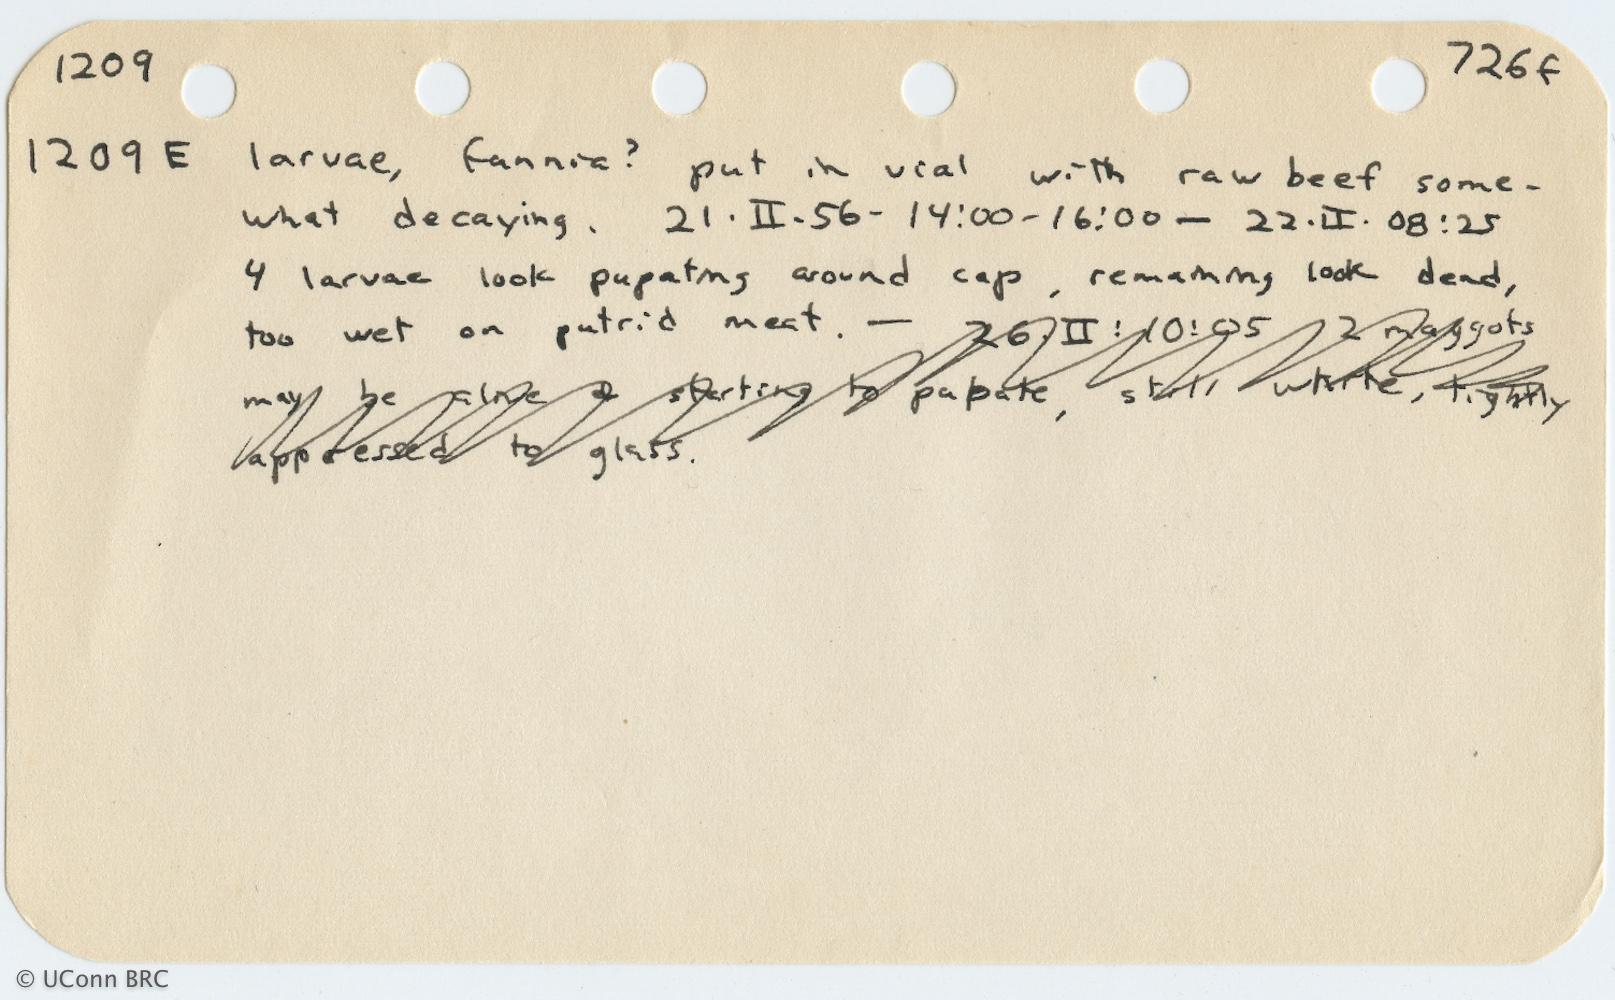 1209 726f
1209 E larvae, Fannia? put in vial with raw beef some-
what decaying. 21.II.56- 14:00-16:00 — 22.II. 08:25
4 larvae look pupating around cap, remaining look dead,
too wet on putrid meat. — 26.II: 10:05 2 maggots
may be alive & starting to pupate, still white, tightly
appressed to glass.
© UConn BRC